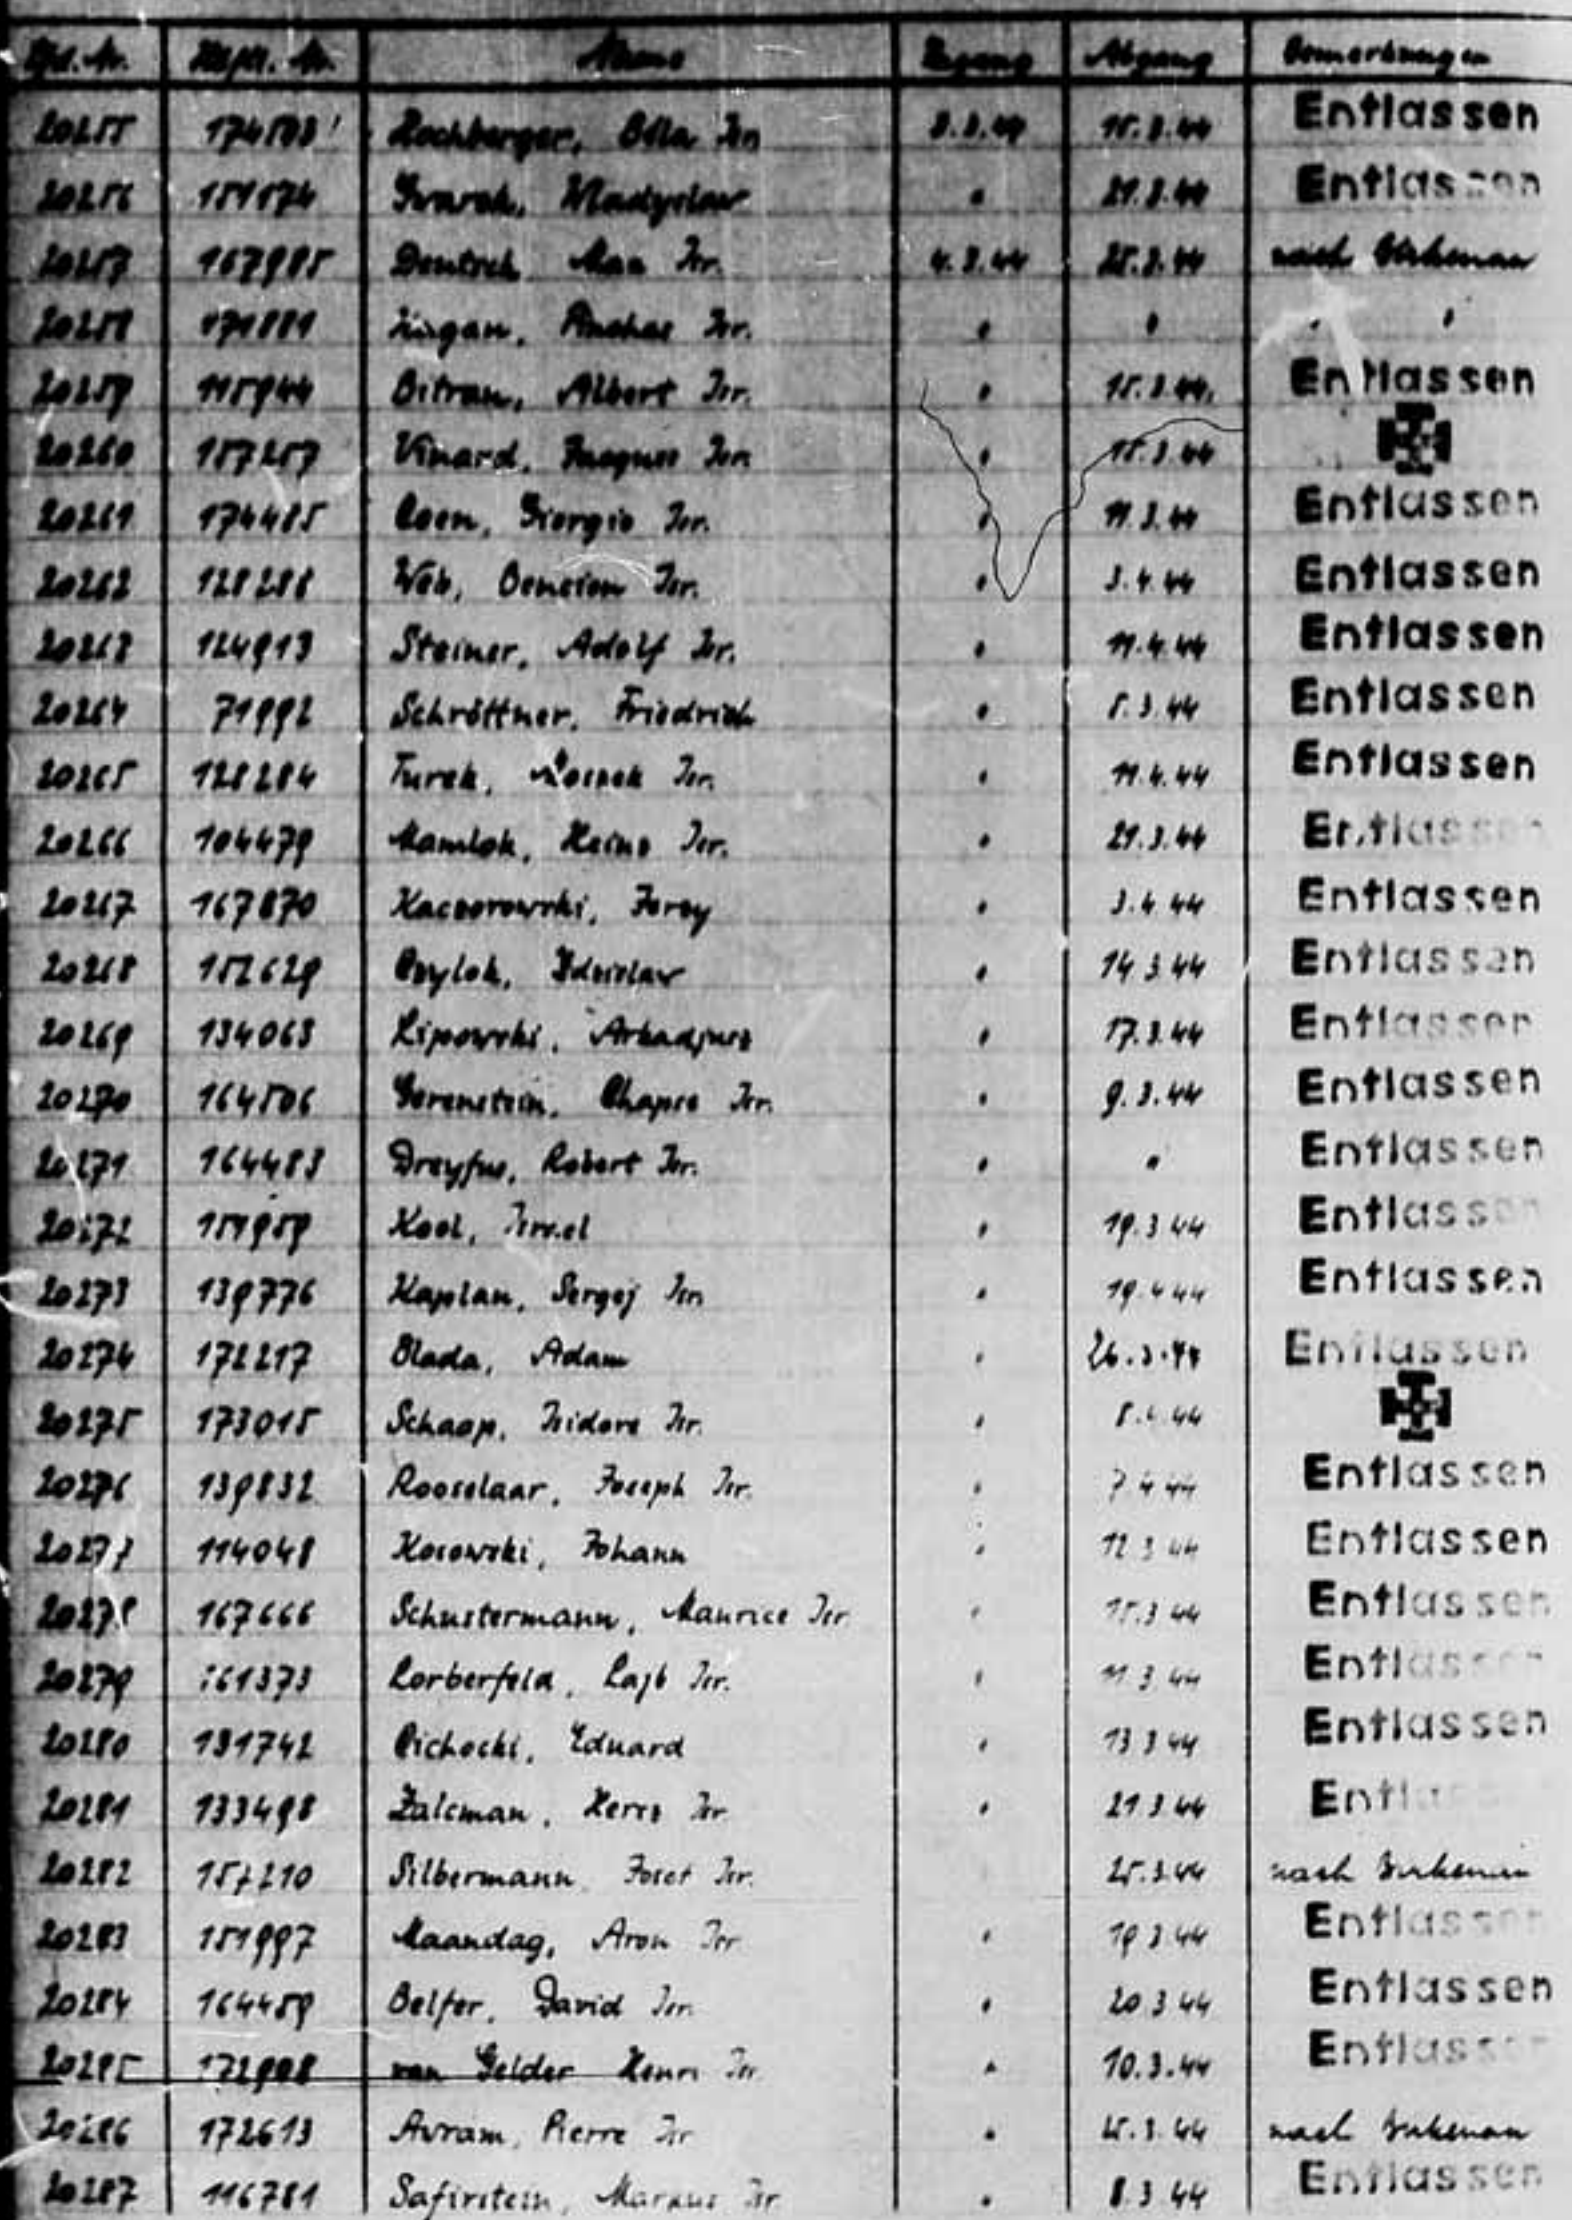 Lfd. Nr. Häftl. Nr. Name Zugang Abgang Bemerkungen
20255 174503 Hochberger, Isr. 3.3.44 15.3.44 Entlassen
20256 151174 Wladyslaw " 21.3.44 Entlassen
20257 167985 Deutsch, Max Isr. 4.3.44 25.3.44 nach Birkenau
20258 171881 Isr. " " " "
20259 115944 Bitran, Albert Isr. " 15.3.44. Entlassen
20260 157257 Vinard, Jaques Isr. " 15.3.44
20261 174485 Coen, Giorgio Isr. " 11.3.44 Entlassen
20262 128288 Web, Bencion Isr. " 3.4.44 Entlassen
20263 124913 Steiner, Adolf Isr. " 11.4.44 Entlassen
20264 71992 Schröttner, Friedrich " 5.3.44 Entlassen
20265 128284 Turek, Isr. " 11.4.44 Entlassen
20266 104479 Mamlok, Heinz Isr. " 21.3.44 Entlassen
20267 167870 Kaczorowski, Jerzy " 3.4 44 Entlassen
20268 152629 Czylok, Zdzislaw " 14 3 44 Entlassen
20269 134063 Lipowski, Arkadjusz " 17.3.44 Entlassen
20270 164506 Gerenstein, Chapse Isr. " 9.3.44 Entlassen
20271 164483 Dreyfus, Robert Isr. " " Entlassen
20272 151959 Kool, Israel " 19.3 44 Entlassen
20273 139776 Kaplan, Sergej Isr. " 19.4 44 Entlassen
20274 172217 Blada, Adam " 26.3.44 Entlassen
20275 173015 Schaap, Isidore Isr. " 44
20276 139832 Rooselaar, Joseph Isr. " 7 4 44 Entlassen
20277 114048 Kosowski, Johann " 12 3 44 Entlassen
20278 167666 Schustermann, Maurice Isr. " 15.3 44 Entlassen
20279 161373 Lorberfeld, Lajb Isr. " 11 3 44 Entlassen
20280 131742 Cichocki, Eduard " 13 3 44 Entlassen
20281 133498 Zalcman, Hersz Isr. " 21 3 44 Entlassen
20282 157210 Silbermann, Josef Isr. 25.3.44 nach Birkenau
20283 151997 Maandag, Aron Isr. " 19 3 44 Entlassen
20284 164459 Belfer, David Isr. " 20 3 44 Entlassen
20285 172908 van Gelder Henri Isr. " 10.3.44 Entlassen
20286 172613 Avram, Pierre Isr. " 25.3.44 nach Birkenau
20287 116781 Safirstein, Markus Isr. " 8.3 44 Entlassen